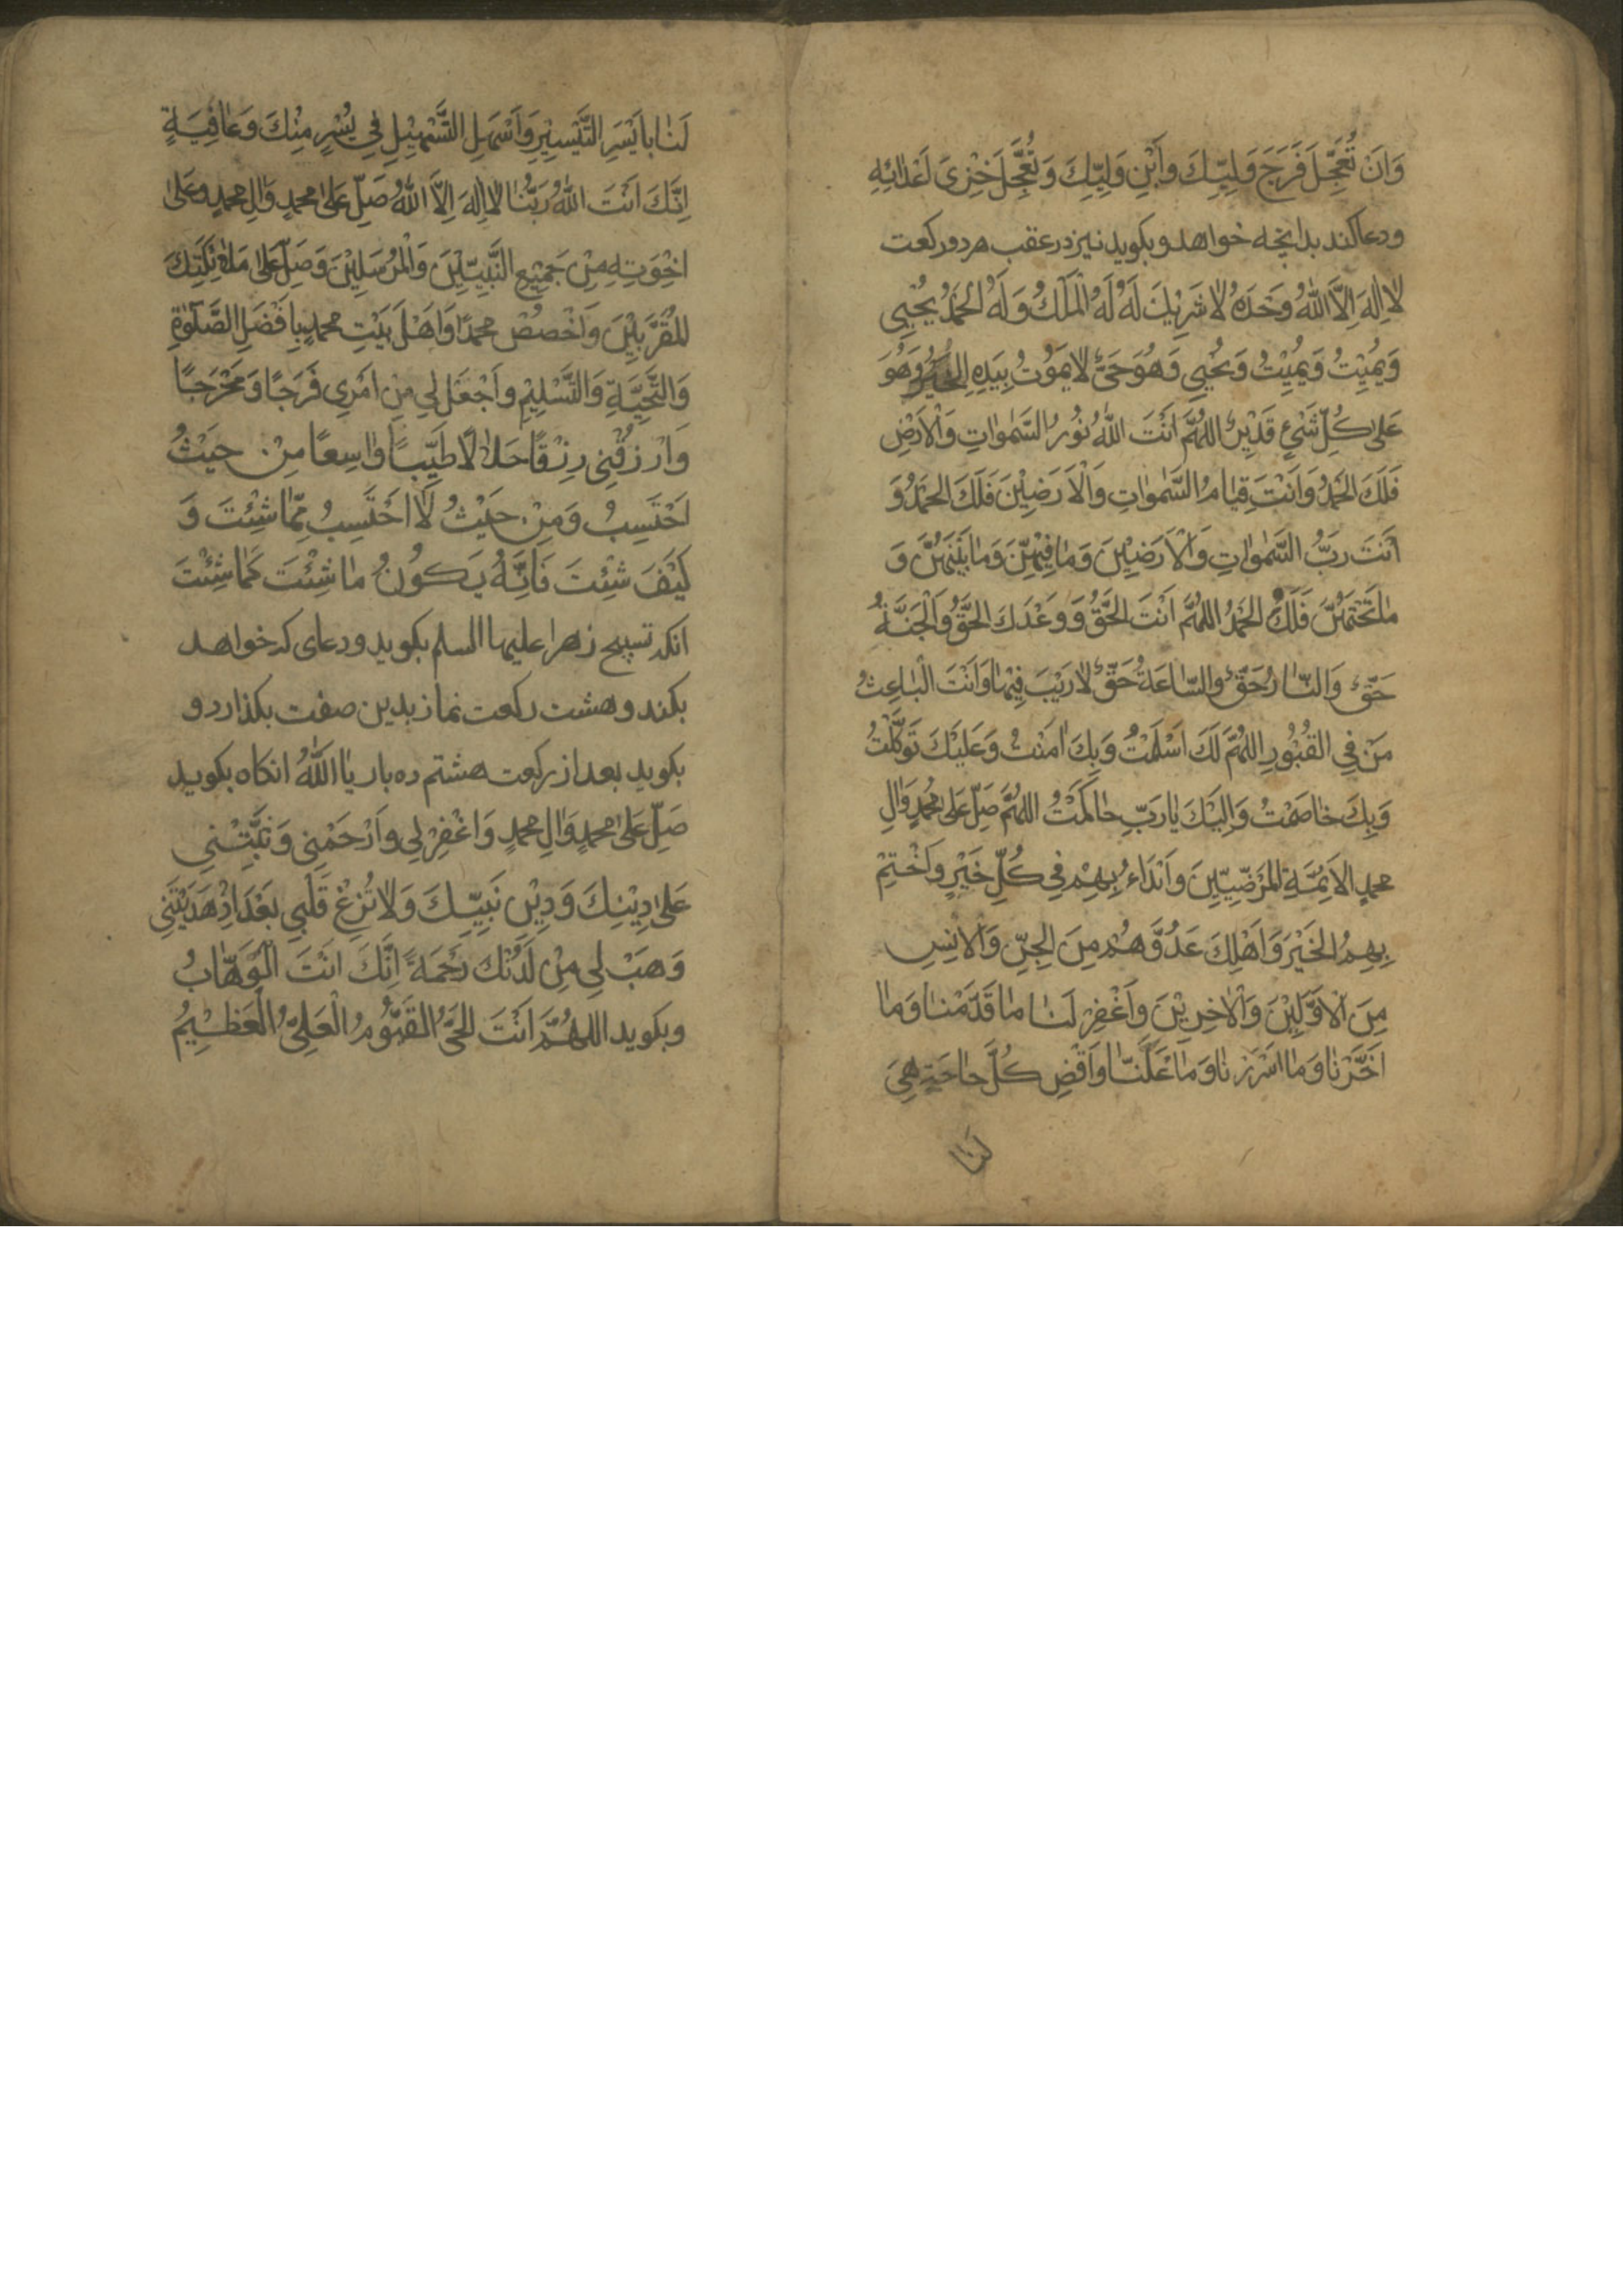 وَاَنْ تُعَجِّلَ فَرَجَ وَلِيِّكَ وَاَبْنِ وَلِيِّكَ وَتُعَجِّلَ خِزْيَ اَعْدائِهِ
ودعا کند بدانچه خواهد و بکوید نیز در عقب هر دو رکعت
لا اِلهَ اِلاَّ اللهُ وَحْدَهُ لا شَرِيْكَ لَهُ لَهُ الْمُلْكُ وَلَهُ الْحَمْدُ يُحْيِي
وَيُمِيْتُ وَيُمِيْتُ وَيُحْيِي وَهُوَ حَيٌّ لا يَمُوْتُ بِيَدِهِ الْخَيْرُ وَهُوَ
عَلى كُلِّ شَيْءٍ قَدِيْرٌ اللهُمَّ اَنْتَ اللهُ نُوْرُ السَّمواتِ وَالْاَرْضِ
فَلَكَ الْحَمْدُ وَاَنْتَ قِيامُ السَّمواتِ وَالْاَرَضِيْنَ فَلَكَ الْحَمْدُ وَ
اَنْتَ رَبُّ السَّمواتِ وَالْاَرَضِيْنَ وَما فِيْهِنَّ وَما بَيْنَهُنَّ وَ
ما تَحْتَهُنَّ فَلَكَ الْحَمْدُ اللهُمَّ اَنْتَ الْحَقُّ وَوَعْدَكَ الْحَقُّ وَالْجَنَّةُ
حَقٌّ وَالنّارُ حَقٌّ وَالسّاعَةُ حَقٌّ لا رَيْبَ فِيْها وَاَنْتَ الْباعِثُ
مَنْ فِي الْقُبُوْرِ اللهُمَّ لَكَ اَسْلَمْتُ وَبِكَ امَنْتُ وَعَلَيْكَ تَوَكَّلْتُ
وَبِكَ خاصَمْتُ وَاِلَيْكَ يا رَبِّ حاكَمْتُ اللهُمَّ صَلِّ عَلى مُحَمَّدٍ وَالِ
محمدٍ الاَئِمَّةِ الْمَرْضِيِّيْنَ وَاَبْدَاءْ بِهِمْ فِي كُلِّ خَيْرٍ وَاَخْتِمْ
بِهِمُ الْخَيْرَ وَاَهْلِكَ عَدُوَّهُمْ مِنَ الْجِنِّ وَالْاِنْسِ
مِنَ الْاَوَّلِيْنَ وَالْاخِرِيْنَ وَاَغْفِرْ لَنا ما قَدَّمْنا وَما
اَخَّرْنا وَما اَسْرَرْنا وَما اَعْلَنّا وَاَقْضِ كُلَّ حاجَةٍ هِيَ
لَنا
لَنا بِاَيْسَرِ التَّيْسِيْرِ وَاَسْهَلِ التَّسْهِيْلِ فِي يُسْرٍ مِنْكَ وَعافِيَةٍ
اِنَّكَ اَنْتَ اللهُ رَبُّنا لا اِلهَ اِلاَّ اللهُ صَلِّ عَلى محمدٍ وَالِ محمدٍ وعَلى
اخْوَتِهِ مِنْ جَمِيْعِ النَّبِيِّيْنَ وَالْمُرْسَلِيْنَ وَصَلِّ عَلى مَلائِكَتِكَ
الْمُقَرَّبِيْنَ وَاَخْصُصْ محمدًا وَاَهْلَ بَيْتِ محمدٍ بِاَفْضَلِ الصَّلوةِ
وَالتَّحِيَّةِ وَالتَّسْلِيْمِ وَاَجْعَلْ لِي مِنْ اَمْرِي فَرَجًا وَمَخْرَجًا
وَاَرْزُقْنِي رِزْقًا حَلالًا طَيِّبًا واسِعًا مِنْ حَيْثُ
اَحْتَسِبُ وَمِنْ حَيْثُ لا اَحْتَسِبُ مِمّا شِئْتَ وَ
كَيْفَ شِئْتَ فَاِنَّهُ يَكُوْنُ ما شِئْتَ كَما شِئْتَ
انکه تسبیح زهرا علیها السلم بکوید ودعای که خواهد
بکند و هشت رکعت نماز بدین صفت بکذارد و
بکوید بعد از رکعت هشتم ده بار یا اَللهُ انکاه بکوید
صَلِّ عَلى محمدٍ وَالِ محمدٍ وَاغْفِرْ لِي وَاَرْحَمْنِي وَثَبِّتْنِي
عَلى دِيْنِكَ وَدِيْنِ نَبِيِّكَ وَلا تُزِغْ قَلْبِي بَعْدَ اِذْ هَدَيْتَنِي
وَهَبْ لِي مِنْ لَدُنْكَ رَحْمَةً اِنَّكَ اَنْتَ الْوَهّابُ
وبکوید اللهُمَّ اَنْتَ الْحَيُّ الْقَيُّوْمُ الْعَلِيُّ الْعَظِيْمُ